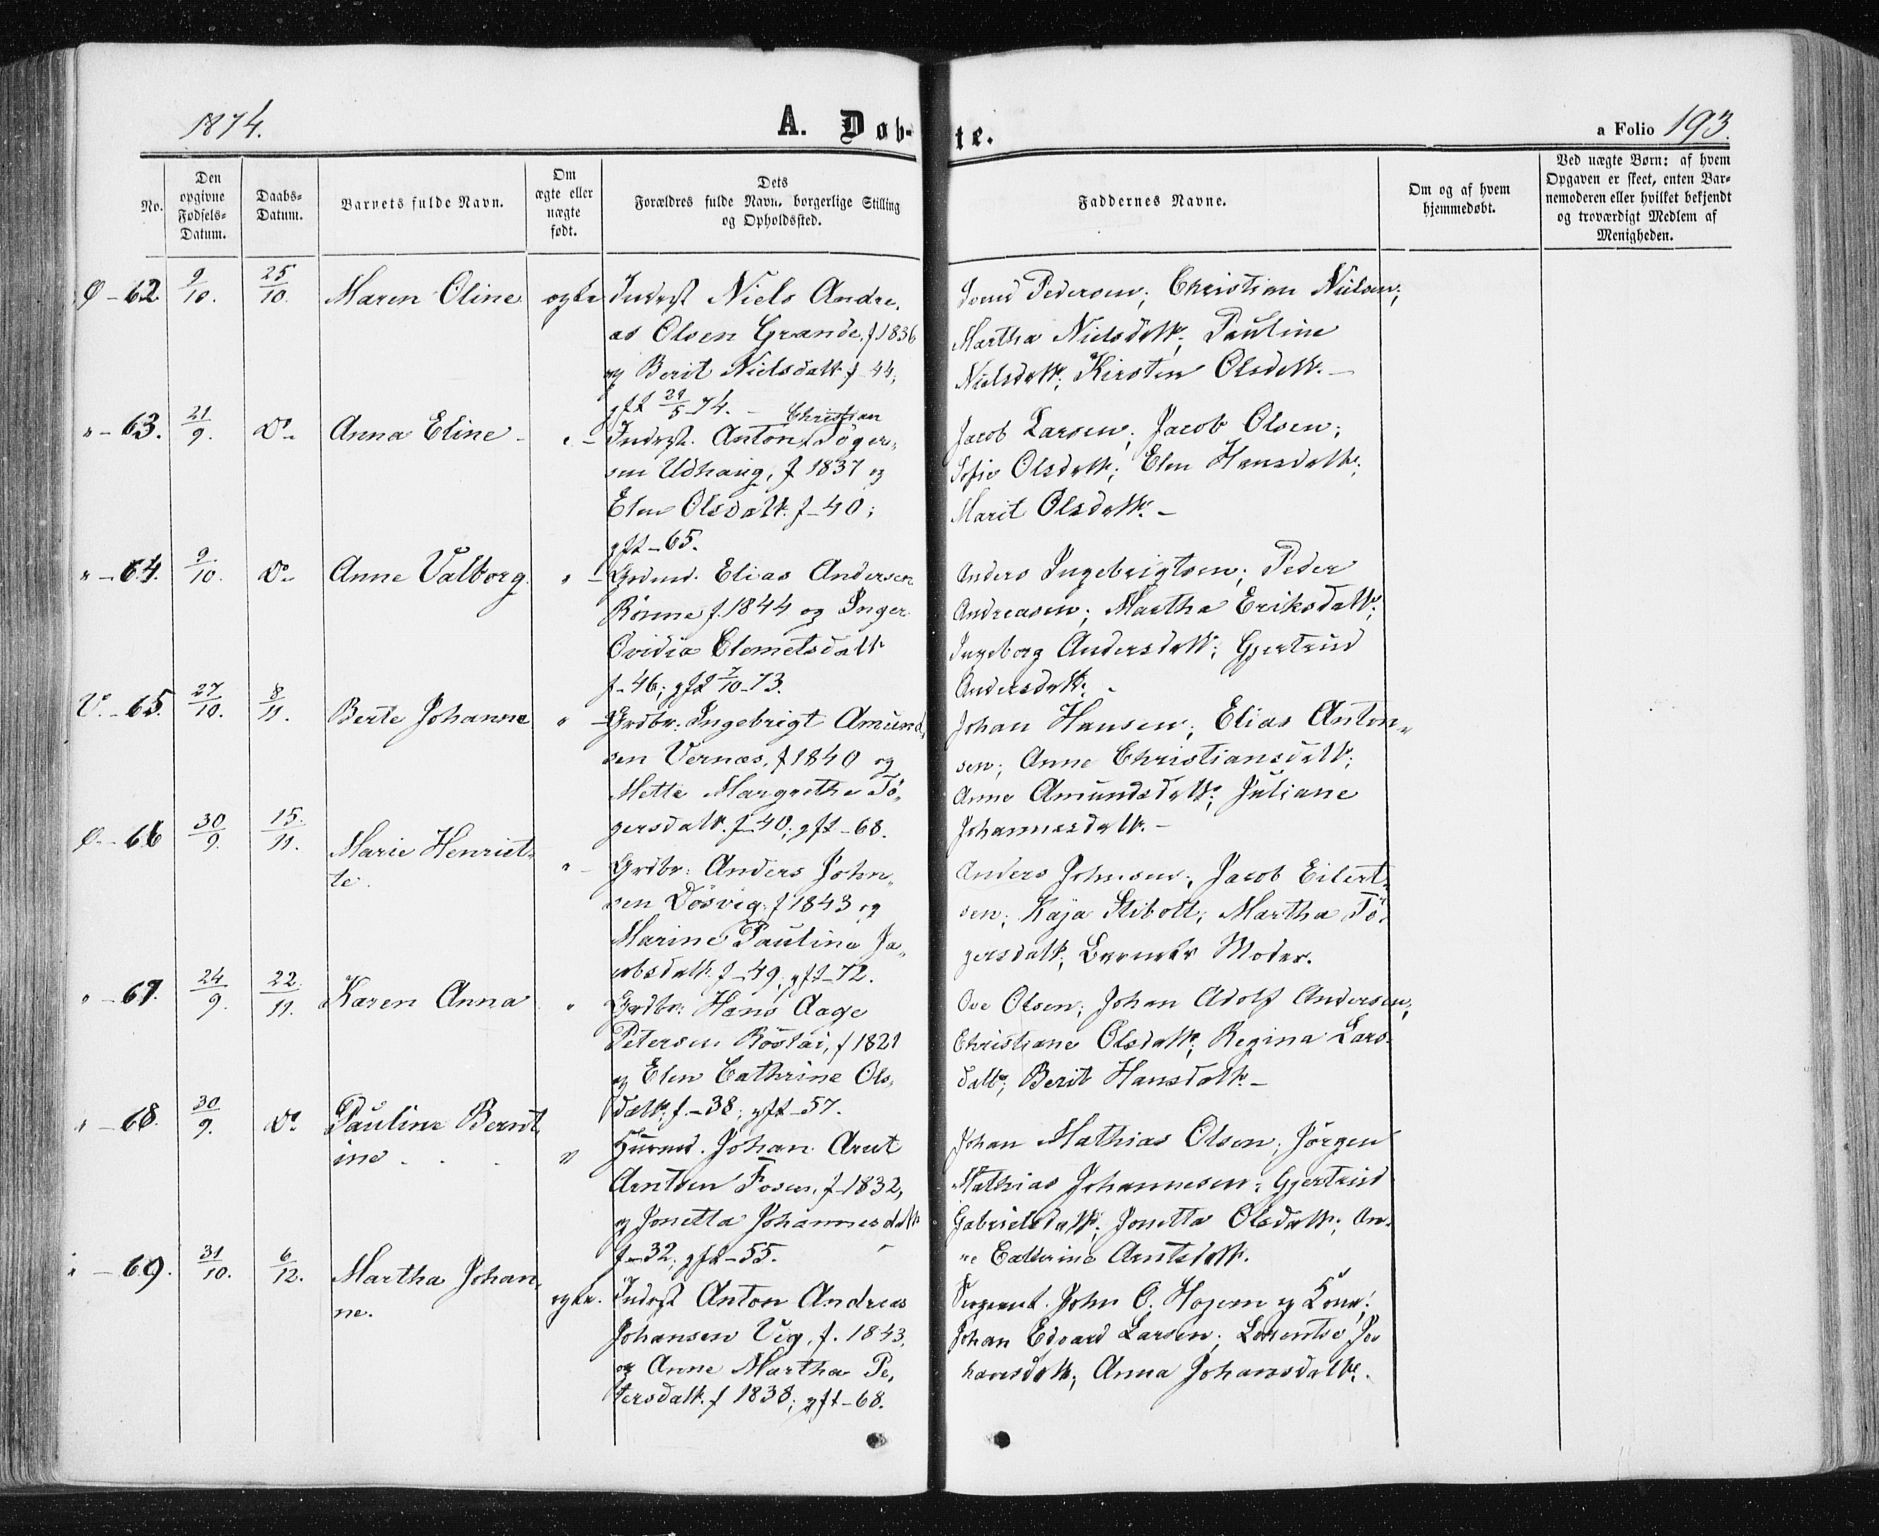 1874.
A. Døb-
te.
a Folio 193.
No.
Den opgivne Fødsels-Datum.
Daabs-Datum.
Barnets fulde Navn.
Om ægte eller uægte født.
Dets Forældres fulde Navn, borgerlige Stilling og Opholdssted.
Faddernes Navne.
Om og af hvem hjemmedøbt.
Ved uægte Børn: af hvem Opgaven er skeet, enten Barnemoderen eller hvilket bekjendt og troværdigt Medlem af Menigheden.
Ø - 62 9/10. 25/10. Maren Oline ægte Inderst Niels Andre-
as Olsen Grande, f 1836
og Berit Nielsdatt. f - 44;
gft 29/5 - 74.
Pedersen; Christian Nielsen;
Martha Nielsdatt.; Pauline
Nielsdatt.; Kirsten Olsdatt. -
" - 63. 21/9. Do - Anna Eline - " - Inderst. Anton Christian Töger-
sen Udhaug, f 1837 og
Elen Olsdatt. f - 40;
gft - 65.
Jacob Larsen; Jacob Olsen;
Sofie Olsdatt.; Elen Hansdatt.;
Marit Olsdatt. -
" - 64. 9/10. Do - Anne Valborg. " - Grdmd. Elias Andersen
Rönne f. 1844 og Inger
Ovidia Clemetsdatt
f - 46; gft 7/10 - 73.
Anders Ingebrigtsen; Peder
Andreasen; Martha Eriksdatt.;
Ingeborg Andersdatt.; Gjertrud
Andersdatt.
V. - 65. 27/10. 8/11. Berte Johanna " - Grdbr. Ingebrigt Amund-
sen Vernæs, f 1840 og
Mette Margrethe Tö-
gersdatt. f - 40; gft - 68.
Johan Hansen; Elias Anton-
sen; Anne Christiansdatt.;
Anne Amundsdatt.; Juliane
Johannesdatt. -
Ø - 66 30/9. 15/11. Marie Henriet-
te. " - Grdbr. Anders John-
sen Dösvig, f 1843 og
Marine Pauline Ja-
cobsdatt. f - 49; gft - 72.
Anders Johnsen; Jacob Eilert-
sen; Kaja Stibolt; Martha Tö-
gersdatt.; Barnets Moder.
" - 67. 24/9. 22/11. Karen Anna " Grdbr. Hans Aage
Petersen, f 1821
og Elen Cathrine Ols-
datt., f. - 38; gft - 57.
Ove Olsen; Johan Adolf Andersen;
Christiane Olsdatt.; Regina Lars-
datt.; Berit Hansdatt. -
" - 68. 30/9. Do Pauline Bernt-
ine " Johan Arnt
Arntsen Fosen, f - 1832,
og Jonetta Johannesdatt
f - 32; gft - 55.
Johan Mathias Olsen; Jörgen
Mathias Johannesen; Gjertrud
Gabrielsdatt.; Jonetta Olsdatt.; An-
ne Cathrine Arntsdatt.
" - 69. 31/10. 6/12. Martha Johan-
ne. ægte. Inderst Anton Andreas
Johansen Vig, f. 1843,
og Anne Martha Pe-
tersdatt. f 1838; gft - 68.
Sergeant. John O. Hojem og Kone;
Johan Edvard Larsen; Lorentse Jo-
hansdatt.; Anna Johansdatt.